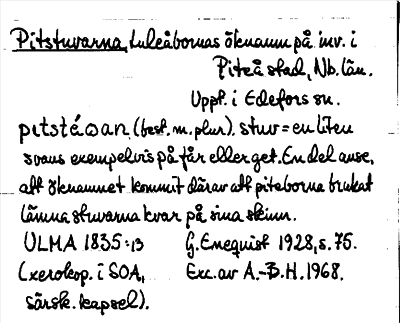 Pitstuvarna, Luleåbornas öknamn på inv. i
Piteå stad, Nb. län.
Uppt. i Edefors sn.
pɩtstáωan (best. m. plur). stuv = en liten
svans exempelvis på får eller get. En del anse,
att öknamnet kommit därav att piteborna brukat
lämna stuvarna kvar på sina skinn.
ULMA 1835:13 G. Enequist 1928, s. 75.
(xerokop. i SOA, Exc. av A.-B. H. 1968.
särsk. kapsel).